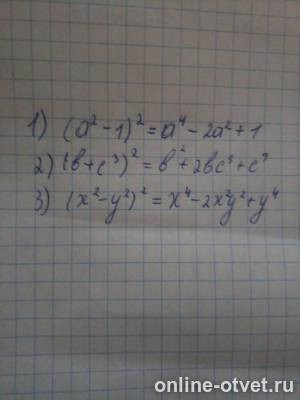 1) (a² - 1)² = a⁴ - 2a² + 1
2) (в + c³)² = в² + 2вc³ + c⁹
3) (x² - y²)² = x⁴ - 2x²y² + y⁴
online-otvet.ru